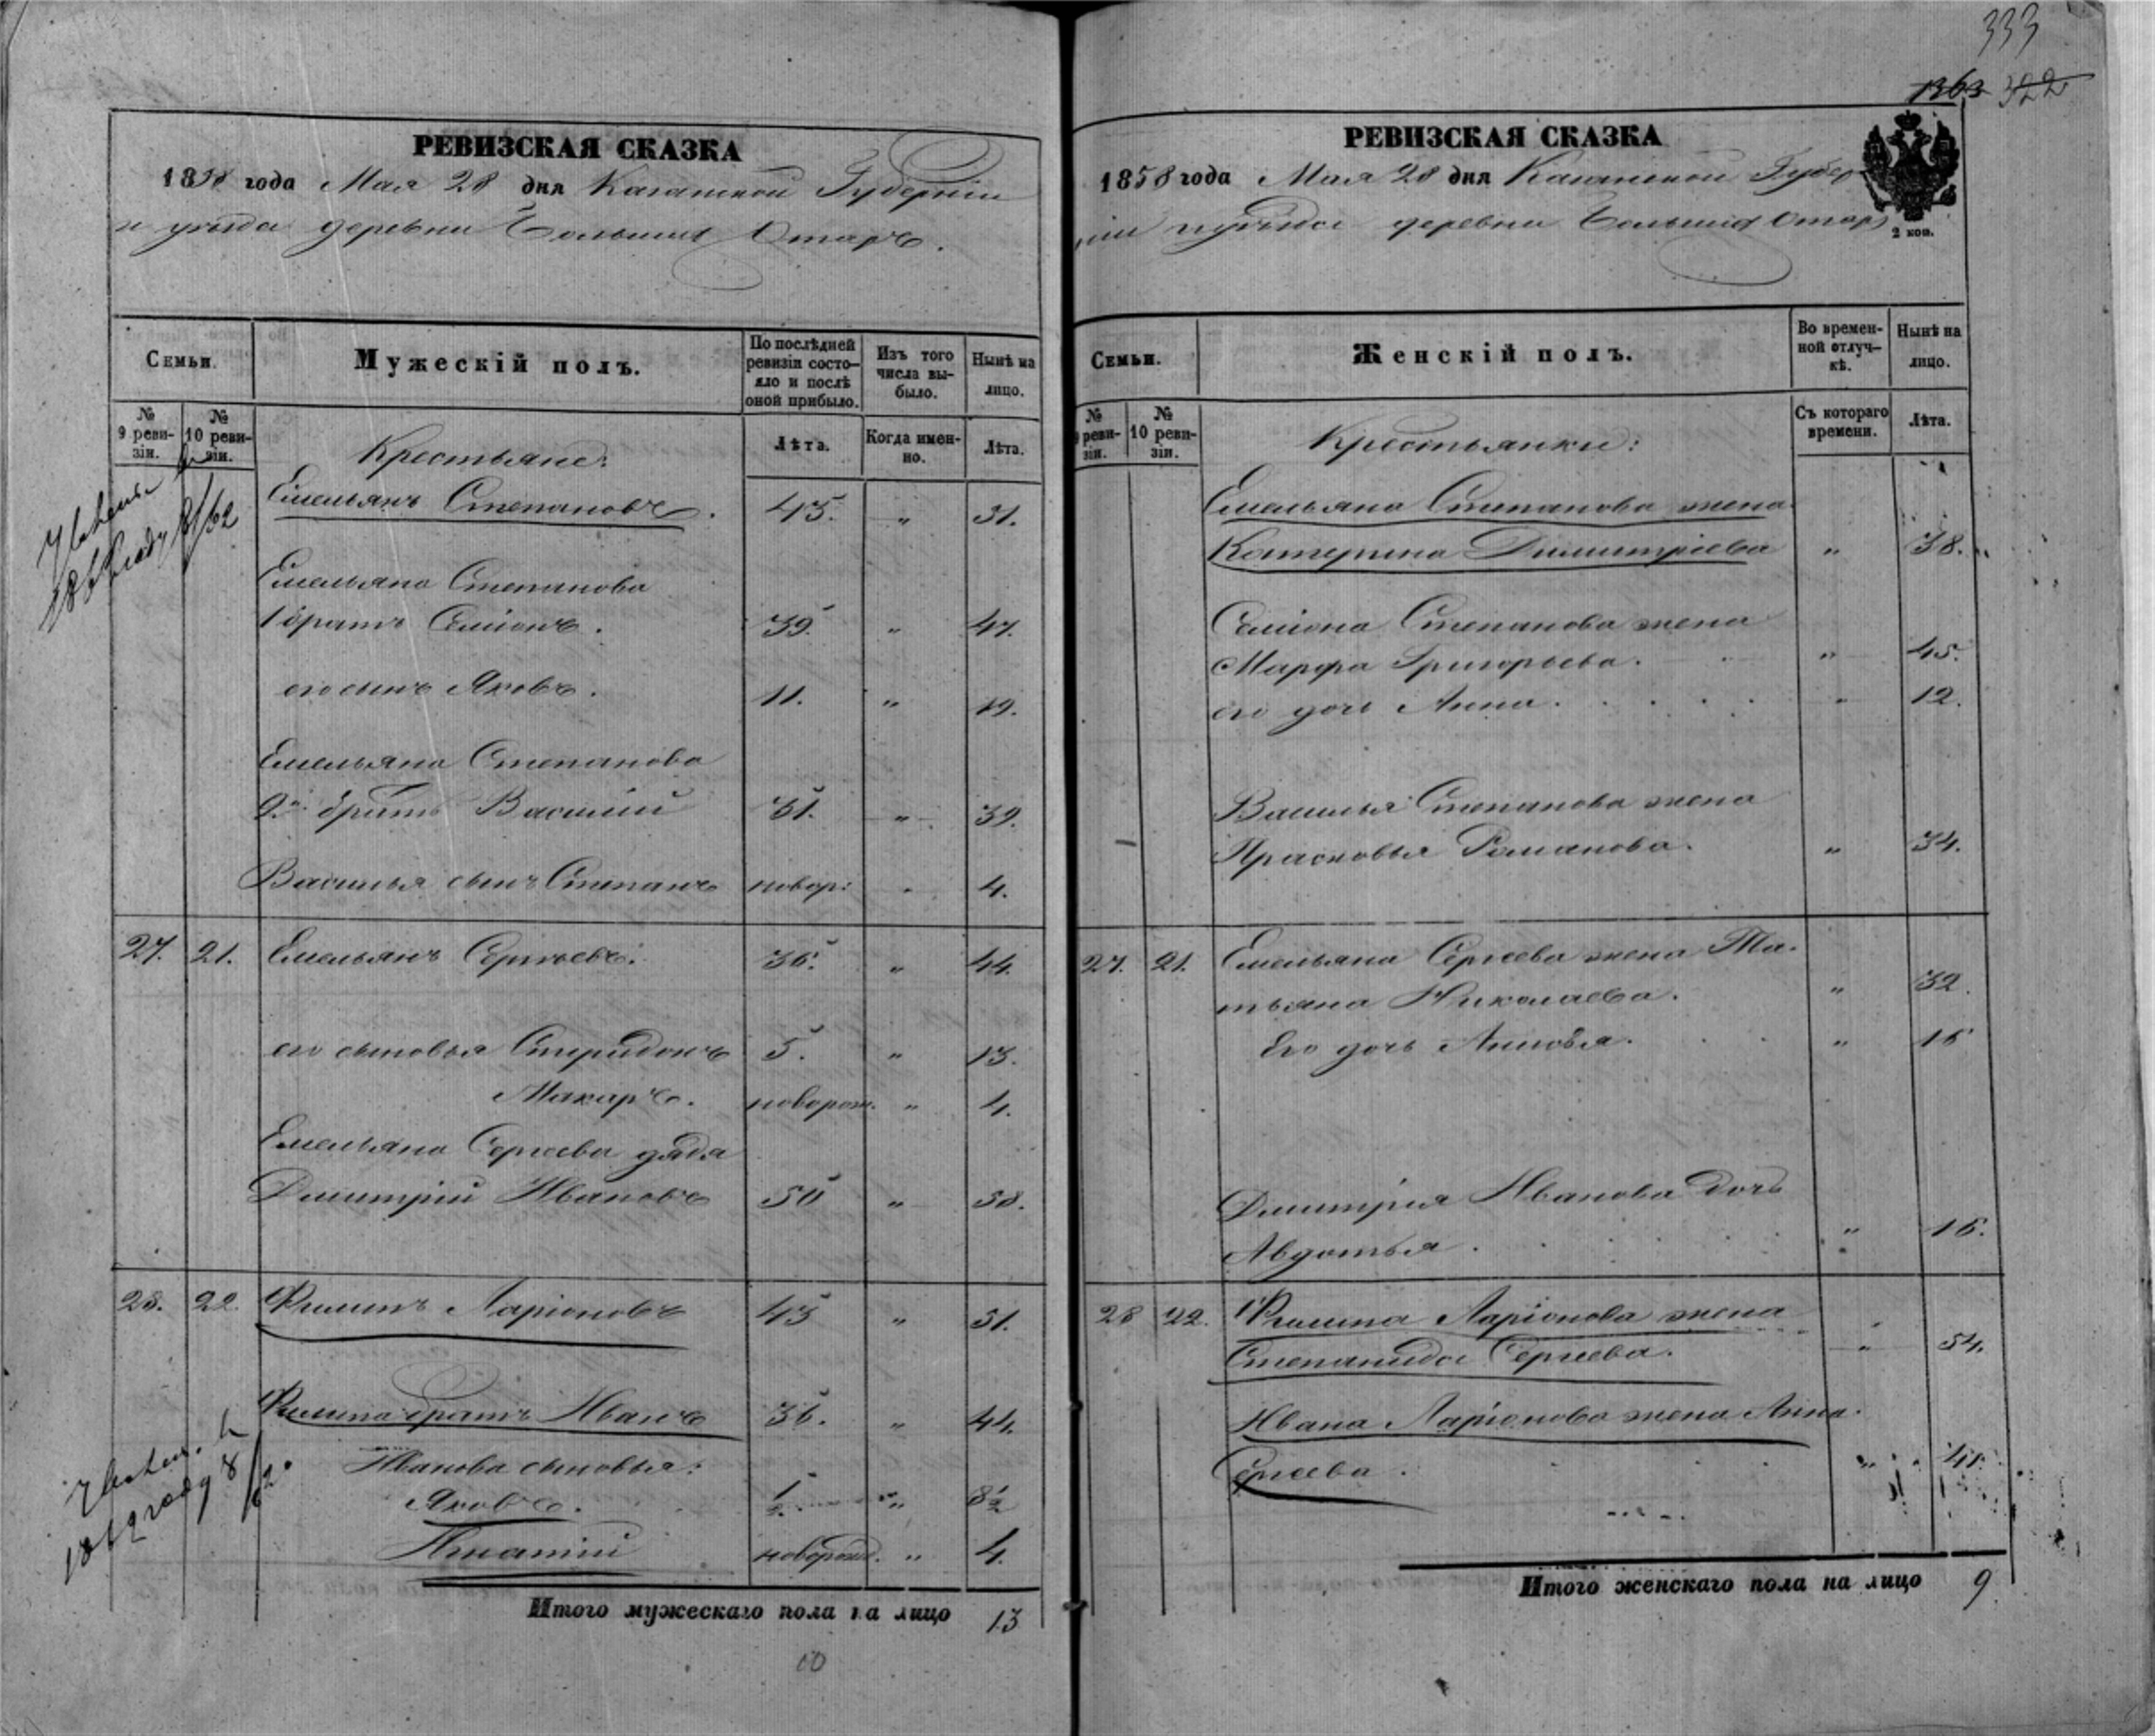 333
1363 322
РЕВИЗСКАЯ СКАЗКА
1858 года Мая 28 дня Казанской Губерніи
и уѣзда деревни Большихъ Отаръ.
Семьи.
Мужескій полъ.
По послѣдней ревизіи состо-
яло и послѣ оной прибыло.
Изъ того числа вы-
было.
Нынѣ на лицо.
№ 9 реви-
зіи.
№ 10 реви-
зіи.
Крестьяне:
Лѣта.
Когда имен-
но.
Лѣта.
Емельянъ Степановъ. 43. „ 51.
Емельяна Степанова
1 братъ Семіонъ. 39. „ 47.
его сынъ Яковъ. 11. „ 19.
Емельяна Степанова
2й братъ Василій 31. „ 39.
Василья сынъ Степанъ новор: „ 4.
27. 21. Емельянъ Сергѣевъ. 36. „ 44.
его сыновья Спиридонъ 5. „ 13.
Макаръ. новорож. „ 4.
Емельяна Сергеева дядя
Димитрій Ивановъ 50 „ 58.
28. 22. Филипъ Ларіоновъ 43 „ 51.
Филипа братъ Иванъ 36. „ 44.
Иванова сыновья:
Яковъ. 1/2 „ 8 1/2
Игнатій новорожд. „ 4.
Итого мужескаго пола на лицо 13
10
РЕВИЗСКАЯ СКАЗКА
1858 года Мая 28 дня Казанской Губер-
ніи и уѣзда деревни Большихъ Отаръ
2 коп.
Семьи.
Женскій полъ.
Во времен-
ной отлуч-
кѣ.
Нынѣ на лицо.
№ 9 реви-
зіи.
№ 10 реви-
зіи.
Крестьянки:
Съ котораго времени.
Лѣта.
Емельяна Степанова жена
Катерина Димитріева „ 38.
Семіона Степанова жена
Марфа Григорьева. „ 45.
его дочь Анна. „ 12.
Василья Степанова жена
Прасковья Романова. „ 34.
27. 21. Емельяна Сергеева жена Та-
тьяна Николаева. „ 32.
Его дочь „ 16
Димитрія Иванова дочь
Авдотья. „ 16.
28 22. Филипа Ларіонова жена
Степанида Сергеева. „ 54.
Ивана Ларіонова жена Анна
Сергеева. „ 41.
Итого женскаго пола на лицо 9